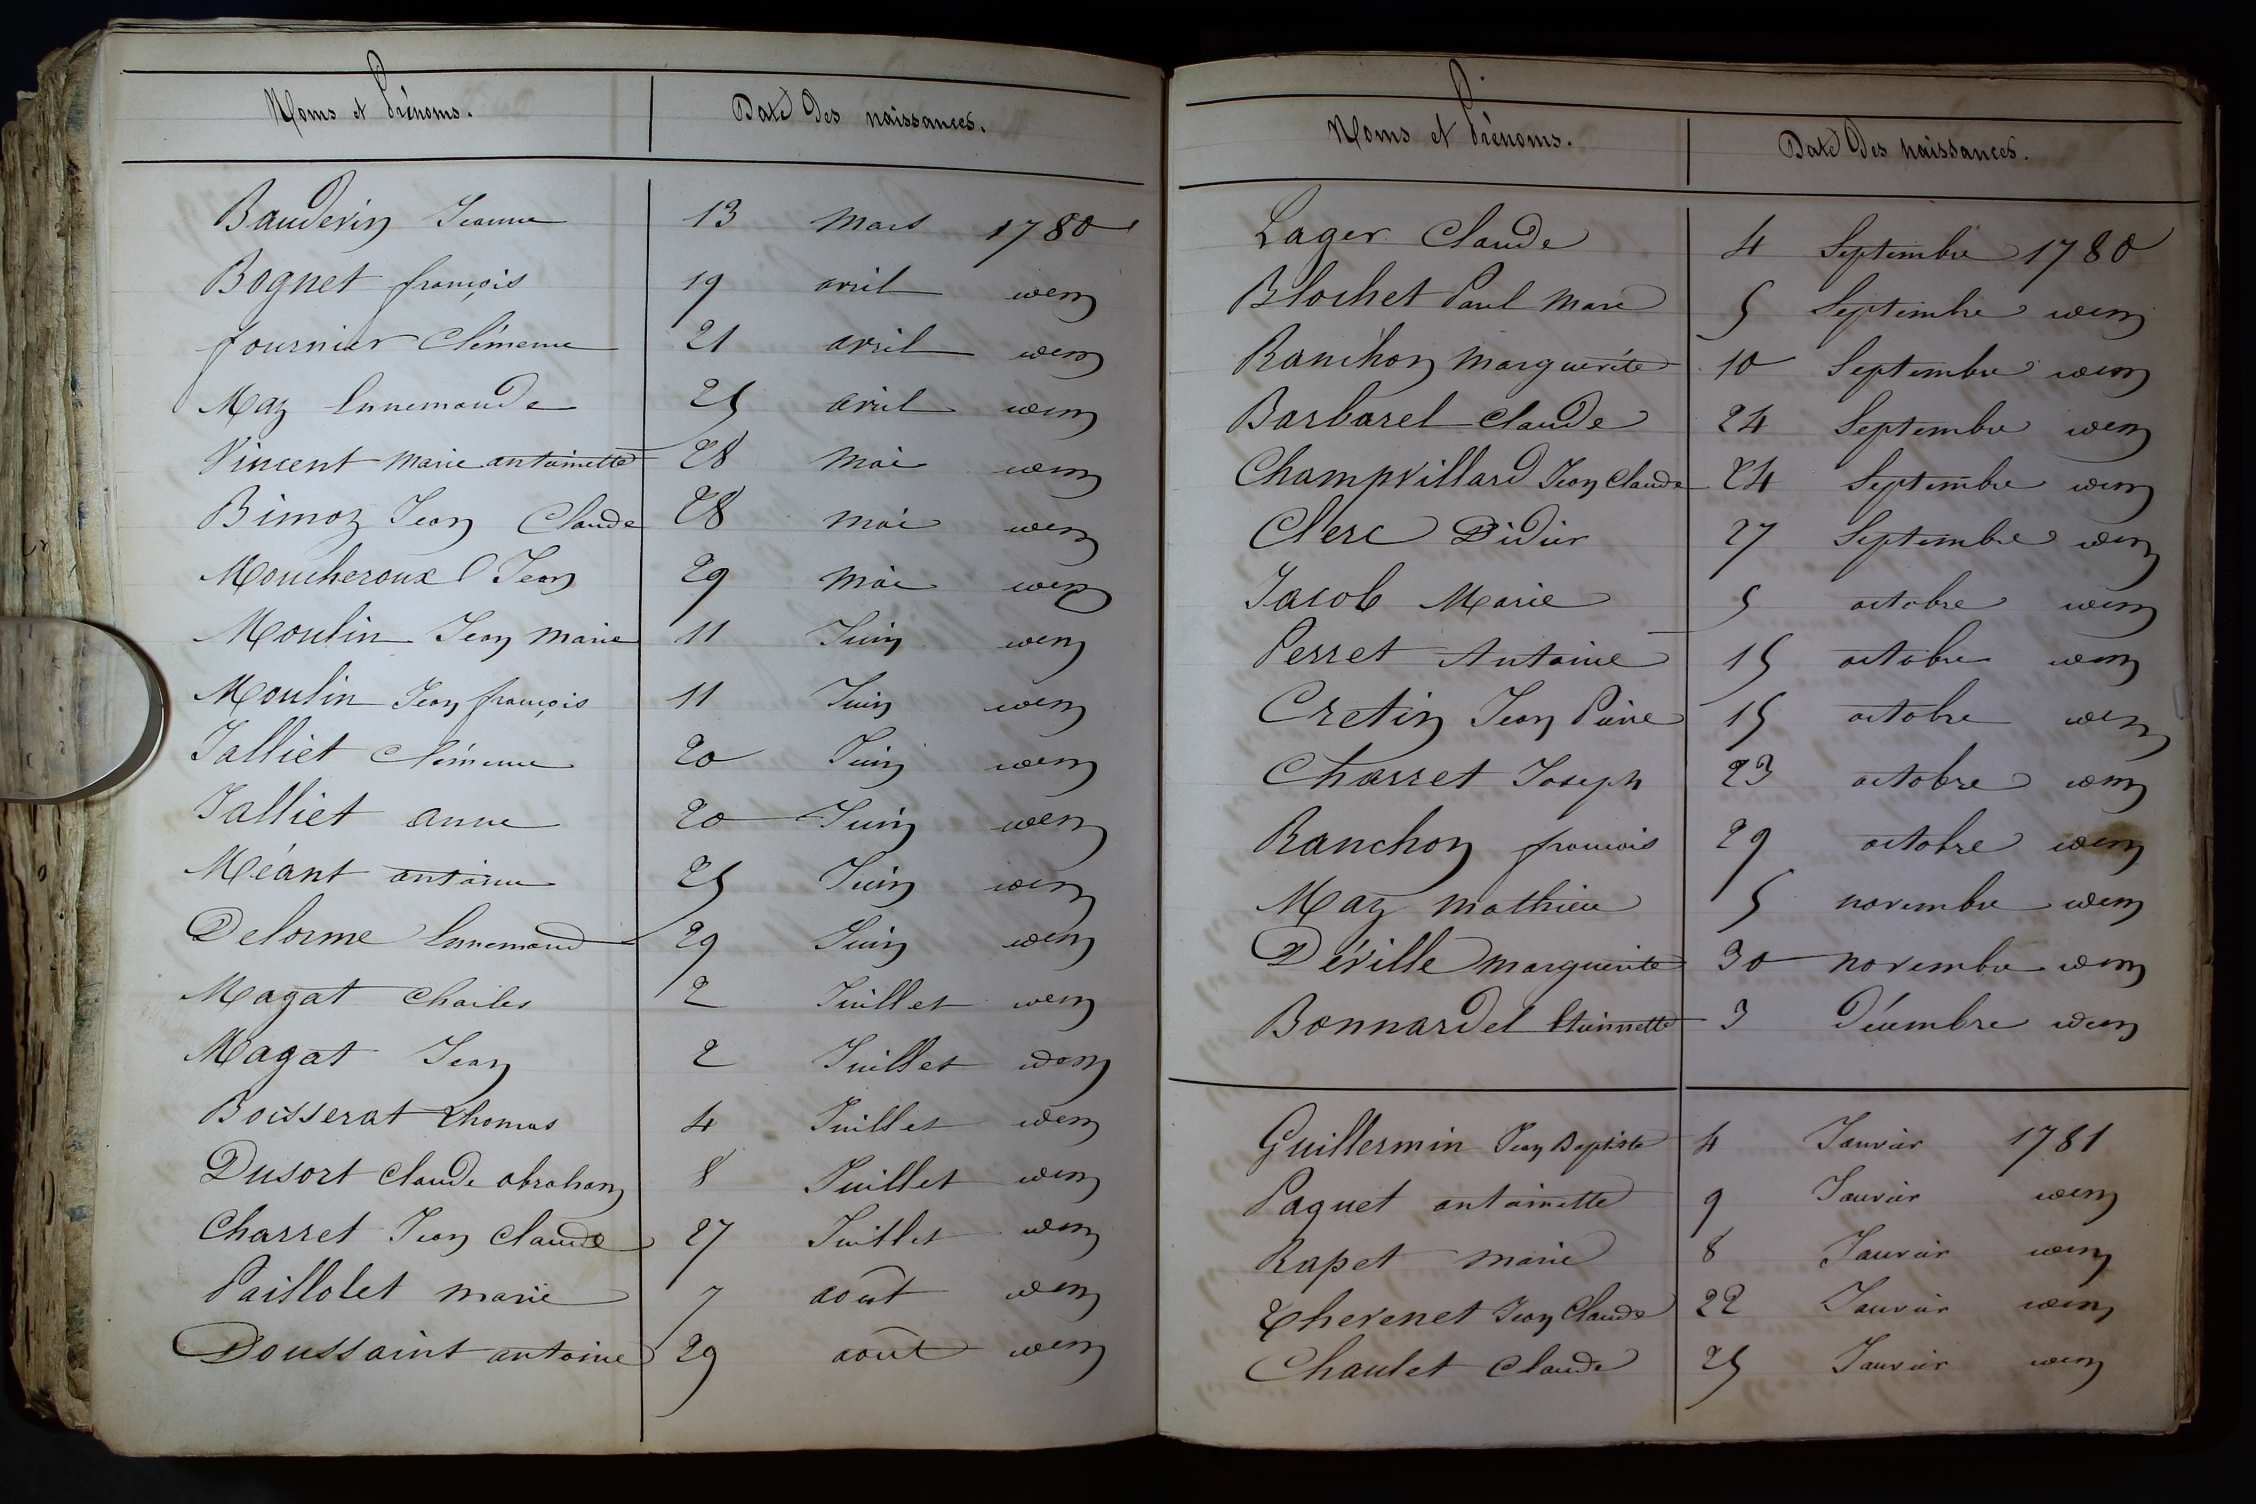 Noms et Prénoms. Date des naissances.
Bauderin Jeanne 13 mars 1780
Bognet françois 19 avril idem
fournier Clémence 21 avril idem
Maz Ennemonde 25 avril idem
Vincent marie antoinette 28 mai idem
Bimoz Jean Claude 28 mai idem
Moucheroux Jean 29 mai idem
Moulin Jean marie 11 Juin idem
Moulin Jean françois 11 Juin idem
Jalliet Clémence 20 Juin idem
Jalliet anne 20 Juin idem
Méant antoine 25 Juin idem
Delorme Ennemond 29 Juin idem
Magat Charles 2 Juillet idem
Magat Jean 2 Juillet idem
Boisserat thomas 4 Juillet idem
Dusort Claude abraham 8 Juillet idem
Charret Jean Claude 27 Juillet idem
Paillolet marie 7 août idem
Doussaint antoine 29 août idem
Noms et Prénoms. Date des naissances.
Lager Claude 4 Septembre 1780
Blochet Paul Marc 5 Septembre idem
Ranchon Marguerite 10 Septembre idem
Barbarel Claude 24 Septembre idem
Champvillard Jean Claude 24 Septembre idem
Clerc Didier 27 Septembre idem
Jacob Marie 5 octobre idem
Perret Antoine 15 octobre idem
Cretin Jean Pierre 15 octobre idem
Charret Joseph 23 octobre idem
Ranchon francois 29 octobre idem
Maz mathieu 5 novembre idem
Déville marguerite 30 novembre idem
Bonnardel Etiennette 3 Décembre idem
Guillermin Jean Baptiste 4 Janvier 1781
Paquet antoinette 9 Janvier idem
Rapet marie 8 Janvier idem
Thevenet Jean Claude 22 Janvier idem
Chaulet Claude 25 Janvier idem